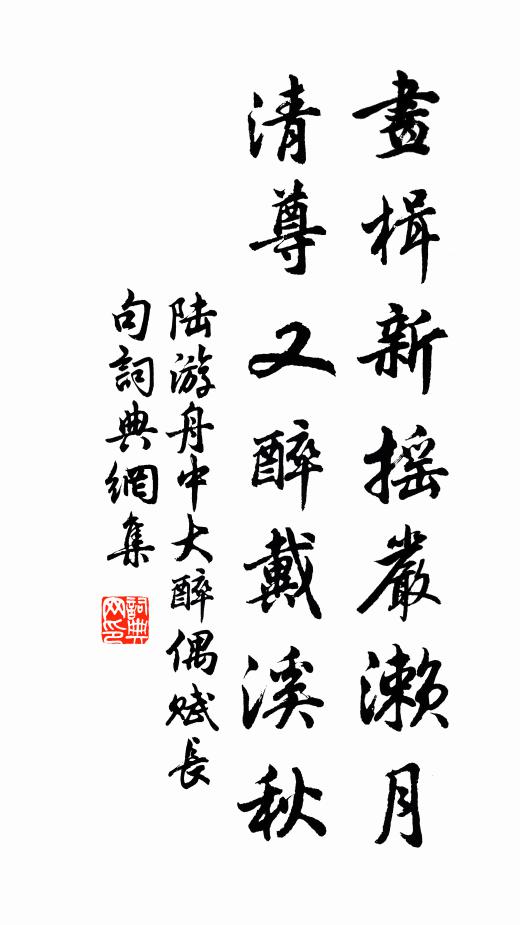 畫楫新摇嚴瀨月
清尊又醉戴溪秋
陆游舟中大醉偶赋長
句詞典網集
詞典
网印